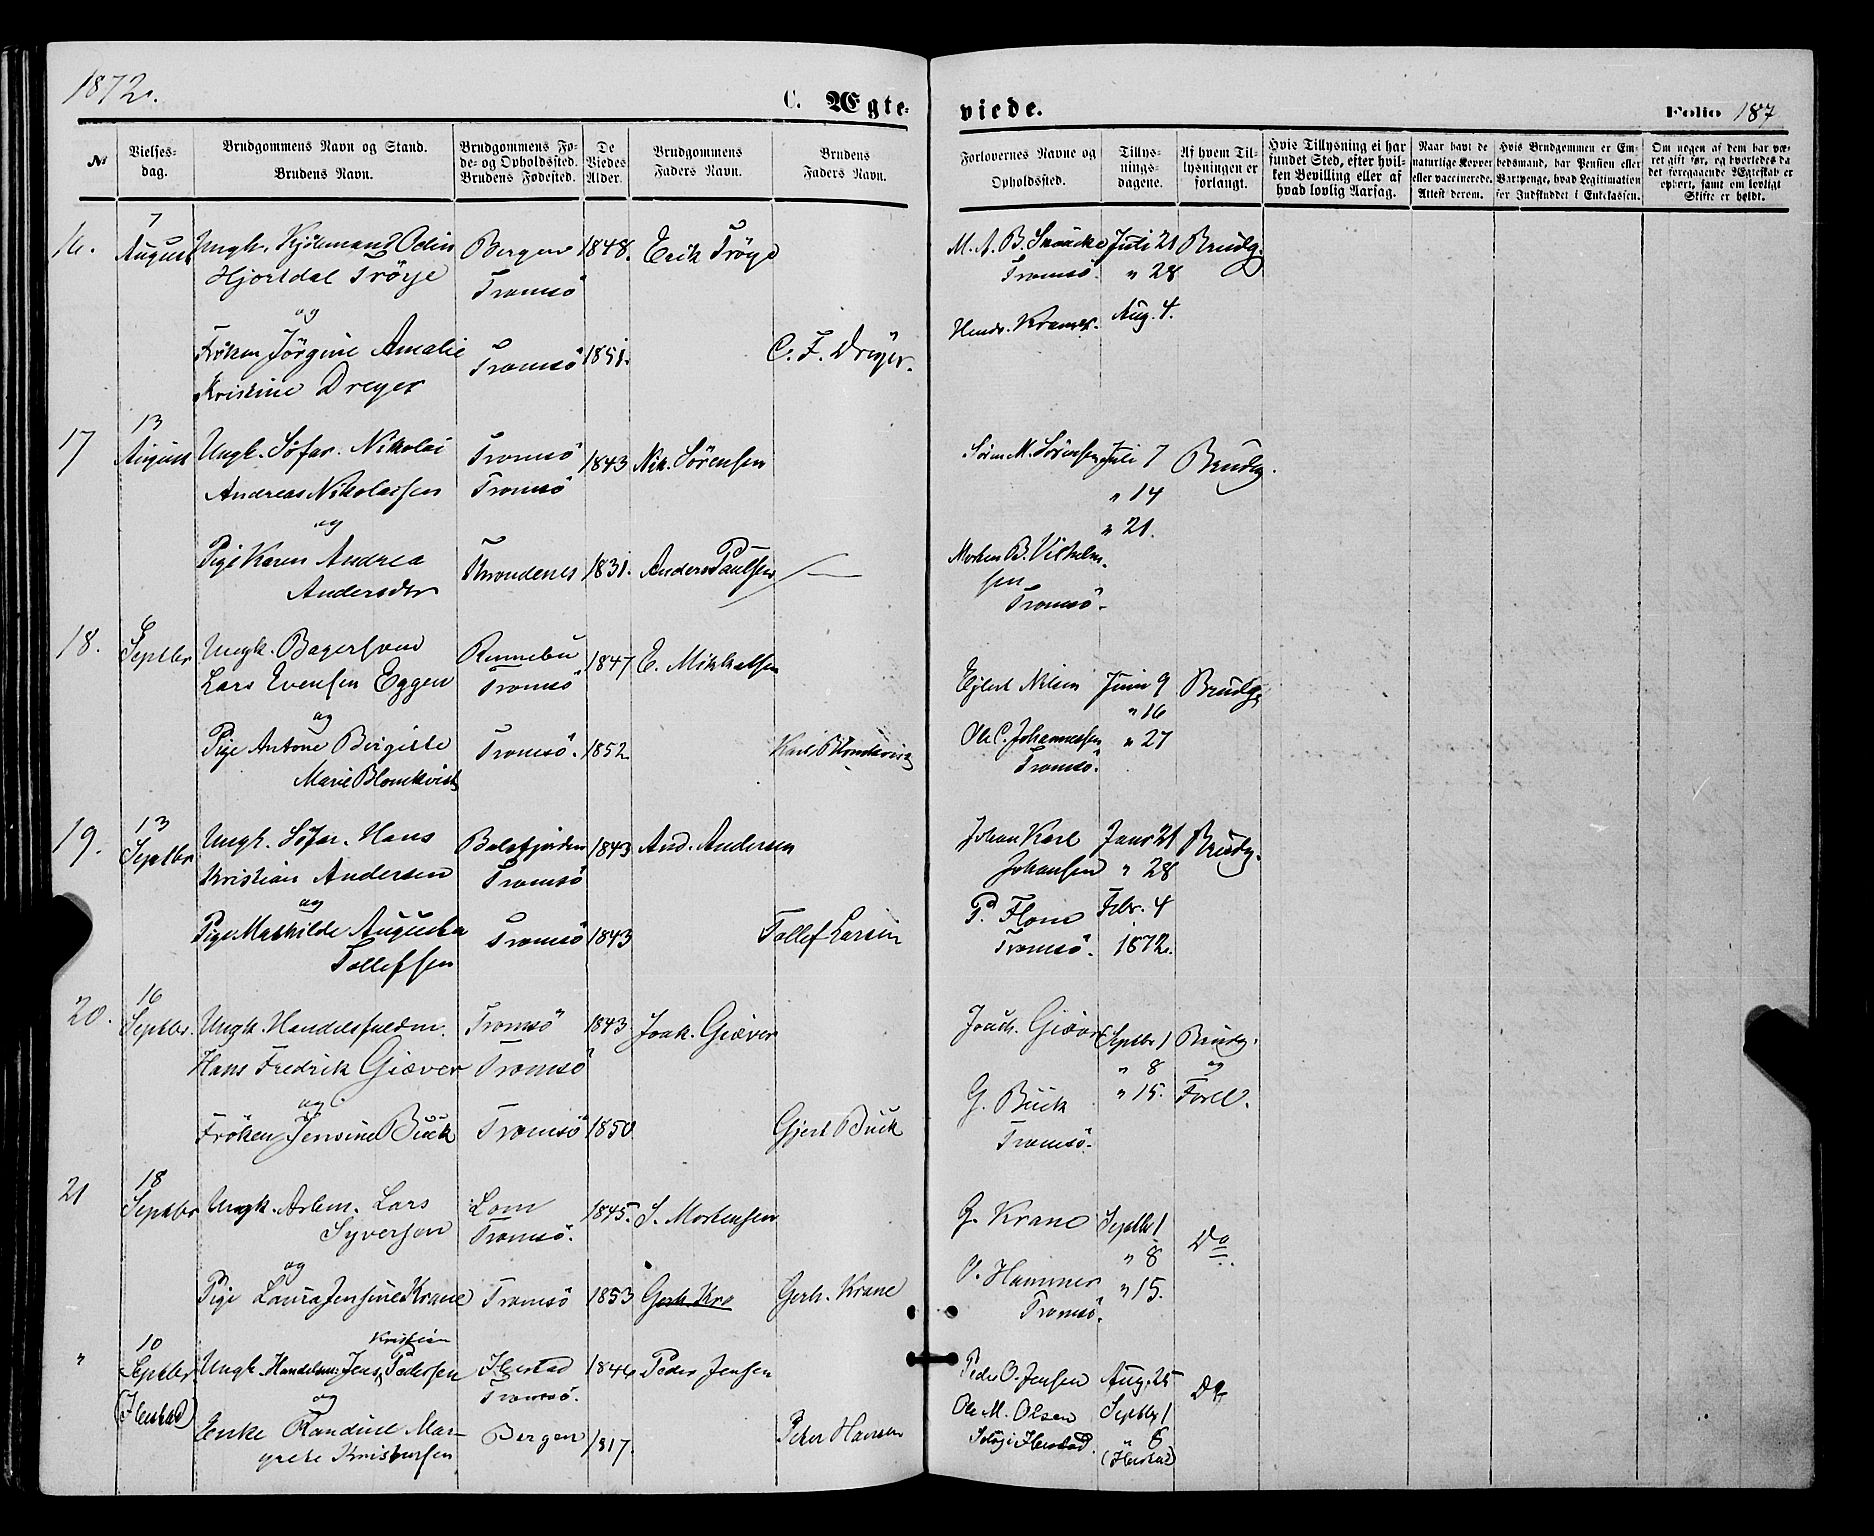 1872.
C. Ægte-
viede.
Folio 187
№
Vielses-
dag.
Brudgommens Navn og Stand.
Brudens Navn.
Brudgommens Fø-
de- og Opholdssted.
Brudens Fødested.
De
Viedes
Alder.
Brudgommens
Faders Navn.
Brudens
Faders Navn.
Forlovernes Navne og
Opholdssted.
Tillys-
nings-
dagene.
Af hvem Til-
lysningen er
forlangt.
Hvis Tillysning ei har
fundet Sted, efter hvil-
ken Bevilling eller af
hvad lovlig Aarsag.
Naar havt de
naturlige Kopper
eller vaccinerede.
Attest derom.
Hvis Brudgommen er Em-
bedsmand, har Pension eller
Vartpenge, hvad Legitimation
for Indskuddet i Enkekassen.
Om nogen af dem har væ-
ret gift før, og hvorledes da
det foregaaende Ægteskab er
ophørt, samt om lovligt
Skifte er holdt.
16.
7
August
Ungk. Kjøbmand Odin
Hjortdal Trøye
og
Frøken Jørgine Amalie
Kristine Dreyer
Bergen
Tromsö
Tromsö
1848.
1851.
Erik Trøye
C. F. Dreyer.
M. A. B.
Tromsö.
Hendr. Kræmer.
Juli 21
" 28
Aug. 4.
Brudg.
17
13
August
Ungk. Söfar. Nikolai
Andreas Nikolaisen
og
Pige Karen Andrea
Andersdtr
Tromsö
Tromsö
Throndenes
1843
1831.
Nik. Sörensen
Anders Paulsen
Sören M. Sörensen
Morten B. Vilhelm-
sen
Tromsö.
Juli 7
" 14
" 21.
Brudg.
18.
6
Septbr
Ungk. Bagersvend
Lars Evensen Eggen
og
Pige Antone Birgitte
Marie Blomkvist
Rennebu
Tromsö
Tromsö.
1847
1852
E. Mikkelsen
Karl Blomkvist
Ejlert Nilsen
Ole C. Johannessen
Tromsö.
Juni 9
" 16
" 27
Brudg.
19.
13
Septbr
Ungk. Söfar. Hans
Kristian Andersen
og
Pige Mathilde Augusta
Tollefsen
Balsfjorden
Tromsö
Tromsö
1843
1843
And. Andersen
Tollef Larsen
Johan Karl
Johansen
P. Flor
Tromsö.
Janr 21
" 28
Febr. 4
1872.
Brudg.
20.
16
Septbr.
Ungk. Handelsfuldm.
Hans Fredrik Giæver
og
Frøken Jensine Buck
Tromsö
Tromsö
Tromsö
1843
1850
Joak. Giæver
Gjert Buck
Joach. Giæver
G. Buck
Tromsö.
Septbr 1
" 8
" 15.
Brudg.
og
Forl.
21
18
Septbr
Ungk. Arbm. Lars
Syversen
og
Pige Laura Jensine Krane
Lom
Tromsö.
Tromsö
1845.
1853
S. Mortensen
Gerh. Kra
Gerh. Krane
G. Krane
O. Hammer
Tromsö.
Septbr 1
" 8
" 15.
Do.
"
10
Septbr
(Ibestad)
Ungk. Handelsm. Jens Kristian Pedersen
og
Enke Randine Mar-
grete Kristensen
Ibestad
Tromsö.
Bergen
1846
1817.
Peder Jensen
Peter Hansen
Peder O. Jensen
Ole M. Olsen
Ibestad.
Aug. 25
Septbr 1
8
(Ibestad)
Do